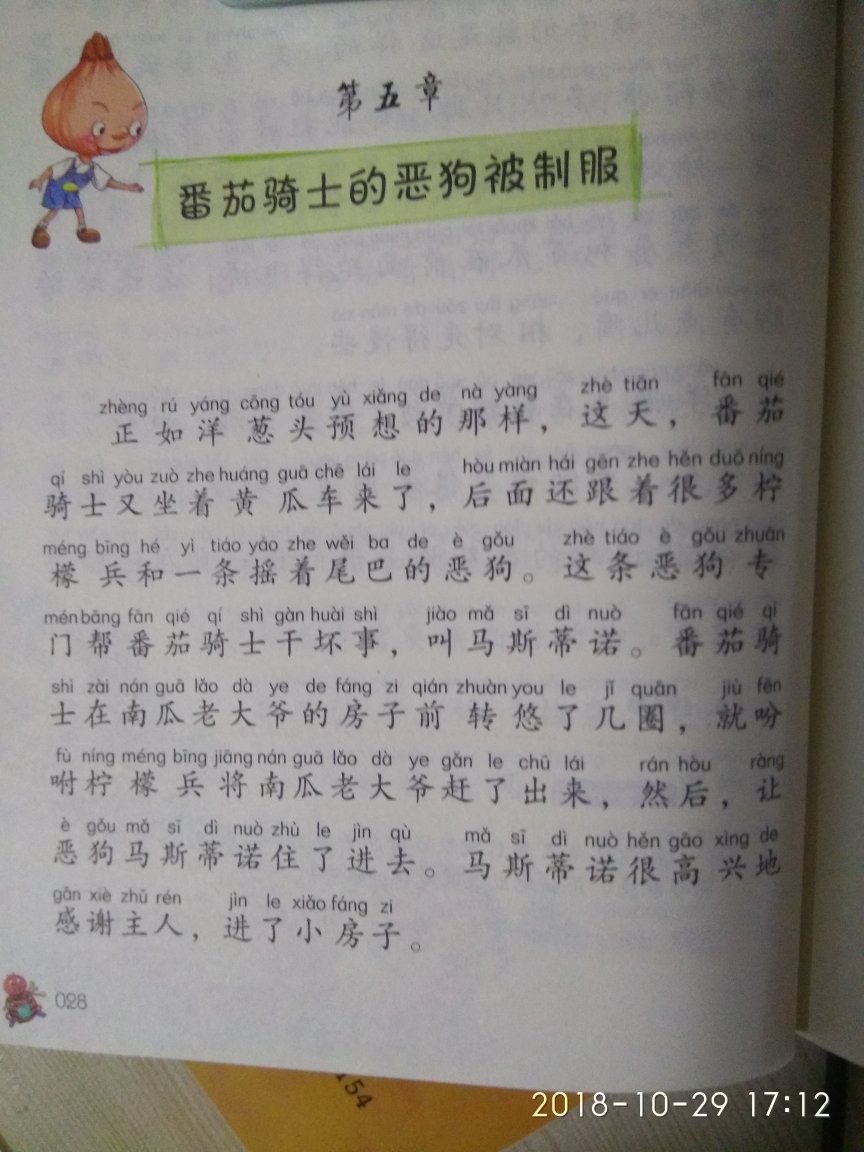 第五章
番茄骑士的恶狗被制服
zhèng rú yáng cōng tóu yù xiǎng de nà yàng zhè tiān fān qié
正如洋葱头预想的那样，这天，番茄
qí shì yòu zuò zhe huáng guā chē lái le hòu miàn hái gēn zhe hěn duō níng
骑士又坐着黄瓜车来了，后面还跟着很多柠
méng bīng hé yì tiáo yáo zhe wěi ba de è gǒu zhè tiáo è gǒu zhuān
檬兵和一条摇着尾巴的恶狗。这条恶狗专
mén bāng fān qié qí shì gàn huài shì jiào mǎ sī dì nuò fān qié qí
门帮番茄骑士干坏事，叫马斯蒂诺。番茄骑
shì zài nán guā lǎo dà ye de fáng zi qián zhuàn you le jǐ quān jiù fēn
士在南瓜老大爷的房子前转悠了几圈，就吩
fù níng méng bīng jiāng nán guā lǎo dà ye gǎn le chū lái rán hòu ràng
咐柠檬兵将南瓜老大爷赶了出来，然后，让
è gǒu mǎ sī dì nuò zhù le jìn qù mǎ sī dì nuò hěn gāo xìng de
恶狗马斯蒂诺住了进去。马斯蒂诺很高兴地
gǎn xiè zhǔ rén jìn le xiǎo fáng zi
感谢主人，进了小房子。
028
154
2018-10-29 17:12